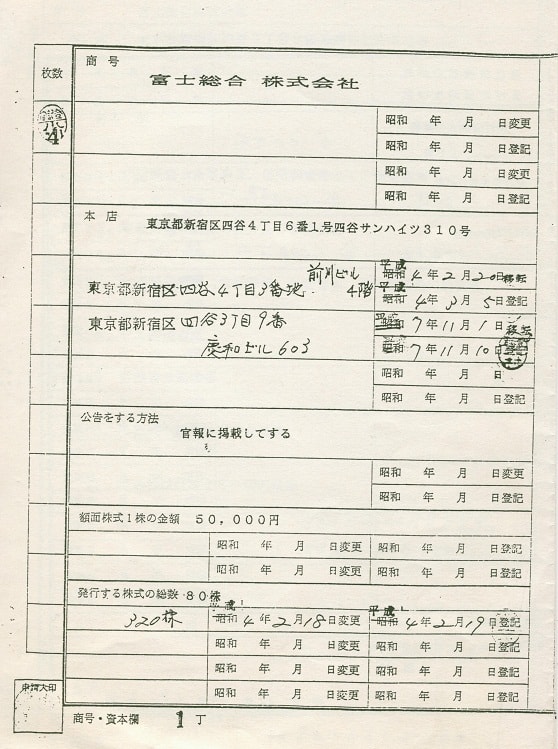 枚数
商号
富士総合 株式会社
4
昭和 年 月 日変更
昭和 年 月 日登記
昭和 年 月 日変更
昭和 年 月 日登記
本店
東京都新宿区四谷4丁目6番1号四谷サンハイツ310号
前川ビル
平成
昭和 4年2月20日移転
東京都新宿区四谷4丁目3番地 4階
平成
昭和 4年3月5日登記
東京都新宿区四谷3丁目9番
昭和 7年11月1日移転
慶和ビル603
昭和 7年11月10日登記
昭和 年 月 日
昭和 年 月 日登記
公告をする方法
官報に掲載してする
昭和 年 月 日変更
昭和 年 月 日登記
額面株式1株の金額 50,000円
昭和 年 月 日変更 昭和 年 月 日登記
昭和 年 月 日変更 昭和 年 月 日登記
発行する株式の総数 80株
平成 平成
320株 昭和 4年2月18日変更 昭和 4年2月19日登記
昭和 年 月 日変更 昭和 年 月 日登記
昭和 年 月 日変更 昭和 年 月 日登記
昭和 年 月 日変更 昭和 年 月 日登記
申請人印
商号・資本欄 1丁